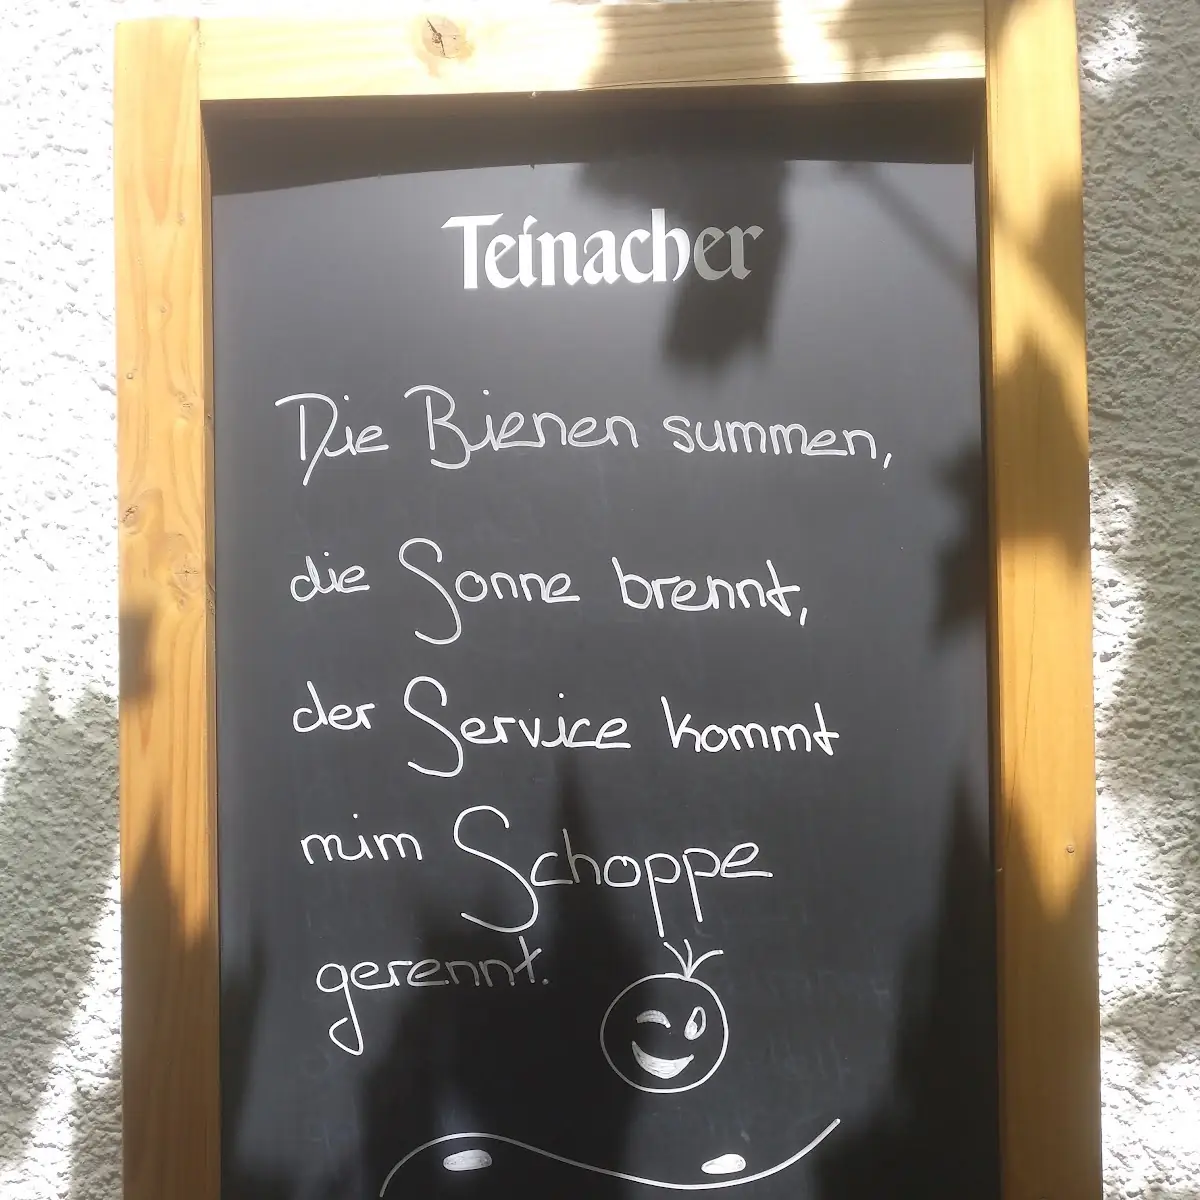 Teinacher
Die Bienen summen,
die Sonne brennt,
der Service kommt
mim Schoppe
gerennt.